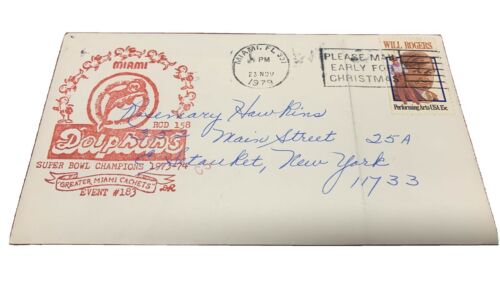 MIAMI
Dolphins
SUPER BOWL CHAMPIONS 1973-74
"GREATER MIAMI CACHETS"
EVENT #183
MIAMI, FL
PM
23 NOV
1979
PLEASE MAIL
EARLY FOR
CHRISTMAS
WILL ROGERS
Performing Arts USA 15c
Rosemary Hawkins
RCD 158
Main Street 25A
Setauket, New York
11733